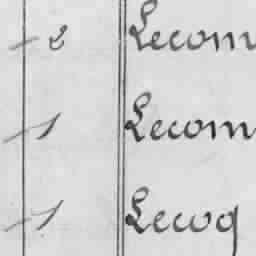 - 2 Lecom
- 1 Lecom
- 1 Lecoq